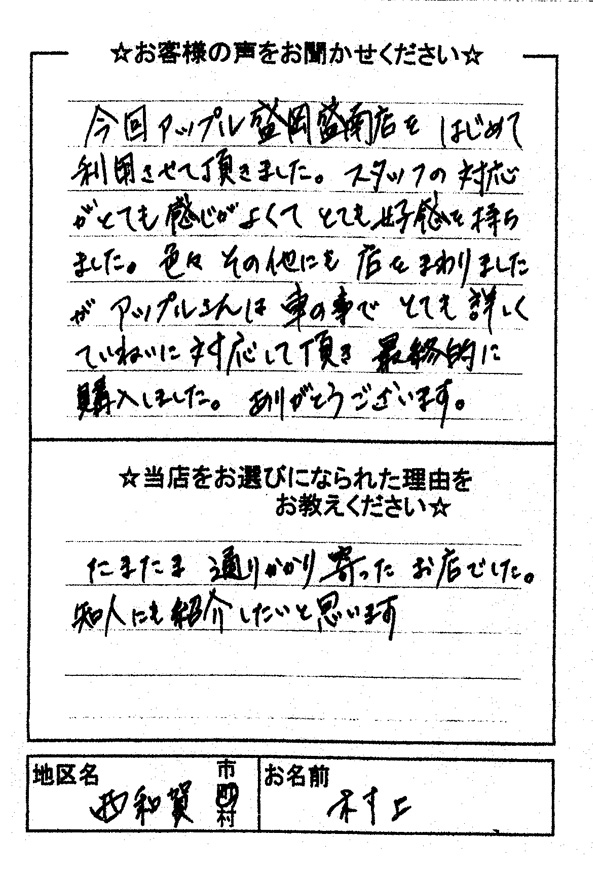 ☆お客様の声をお聞かせください☆
今回アップル盛岡盛南店を はじめて
利用させて頂きました。スタッフの対応
がとても感じがよくて とても好感を持ち
ました。色々 その他にも 店を まわりました
が アップルさんは 車の事で とても 詳しく
ていねいに対応して頂き 最終的に
購入しました。ありがとうございます。
☆当店をお選びになられた理由を
お教えください☆
たまたま 通りかかり 寄った お店でした。
知人にも紹介したいと思います
地区名 西和賀 市町村 お名前 村上